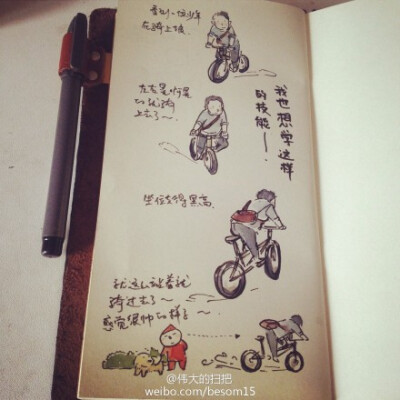 看到一位少年
在骑上坡
左右晃啊晃
的就骑
上去了～
我也想学这样
的技能——
坐位支得黑高
就这么站着就
骑过去了～
感觉很帅的样子～
@伟大的扫把
weibo.com/besom15